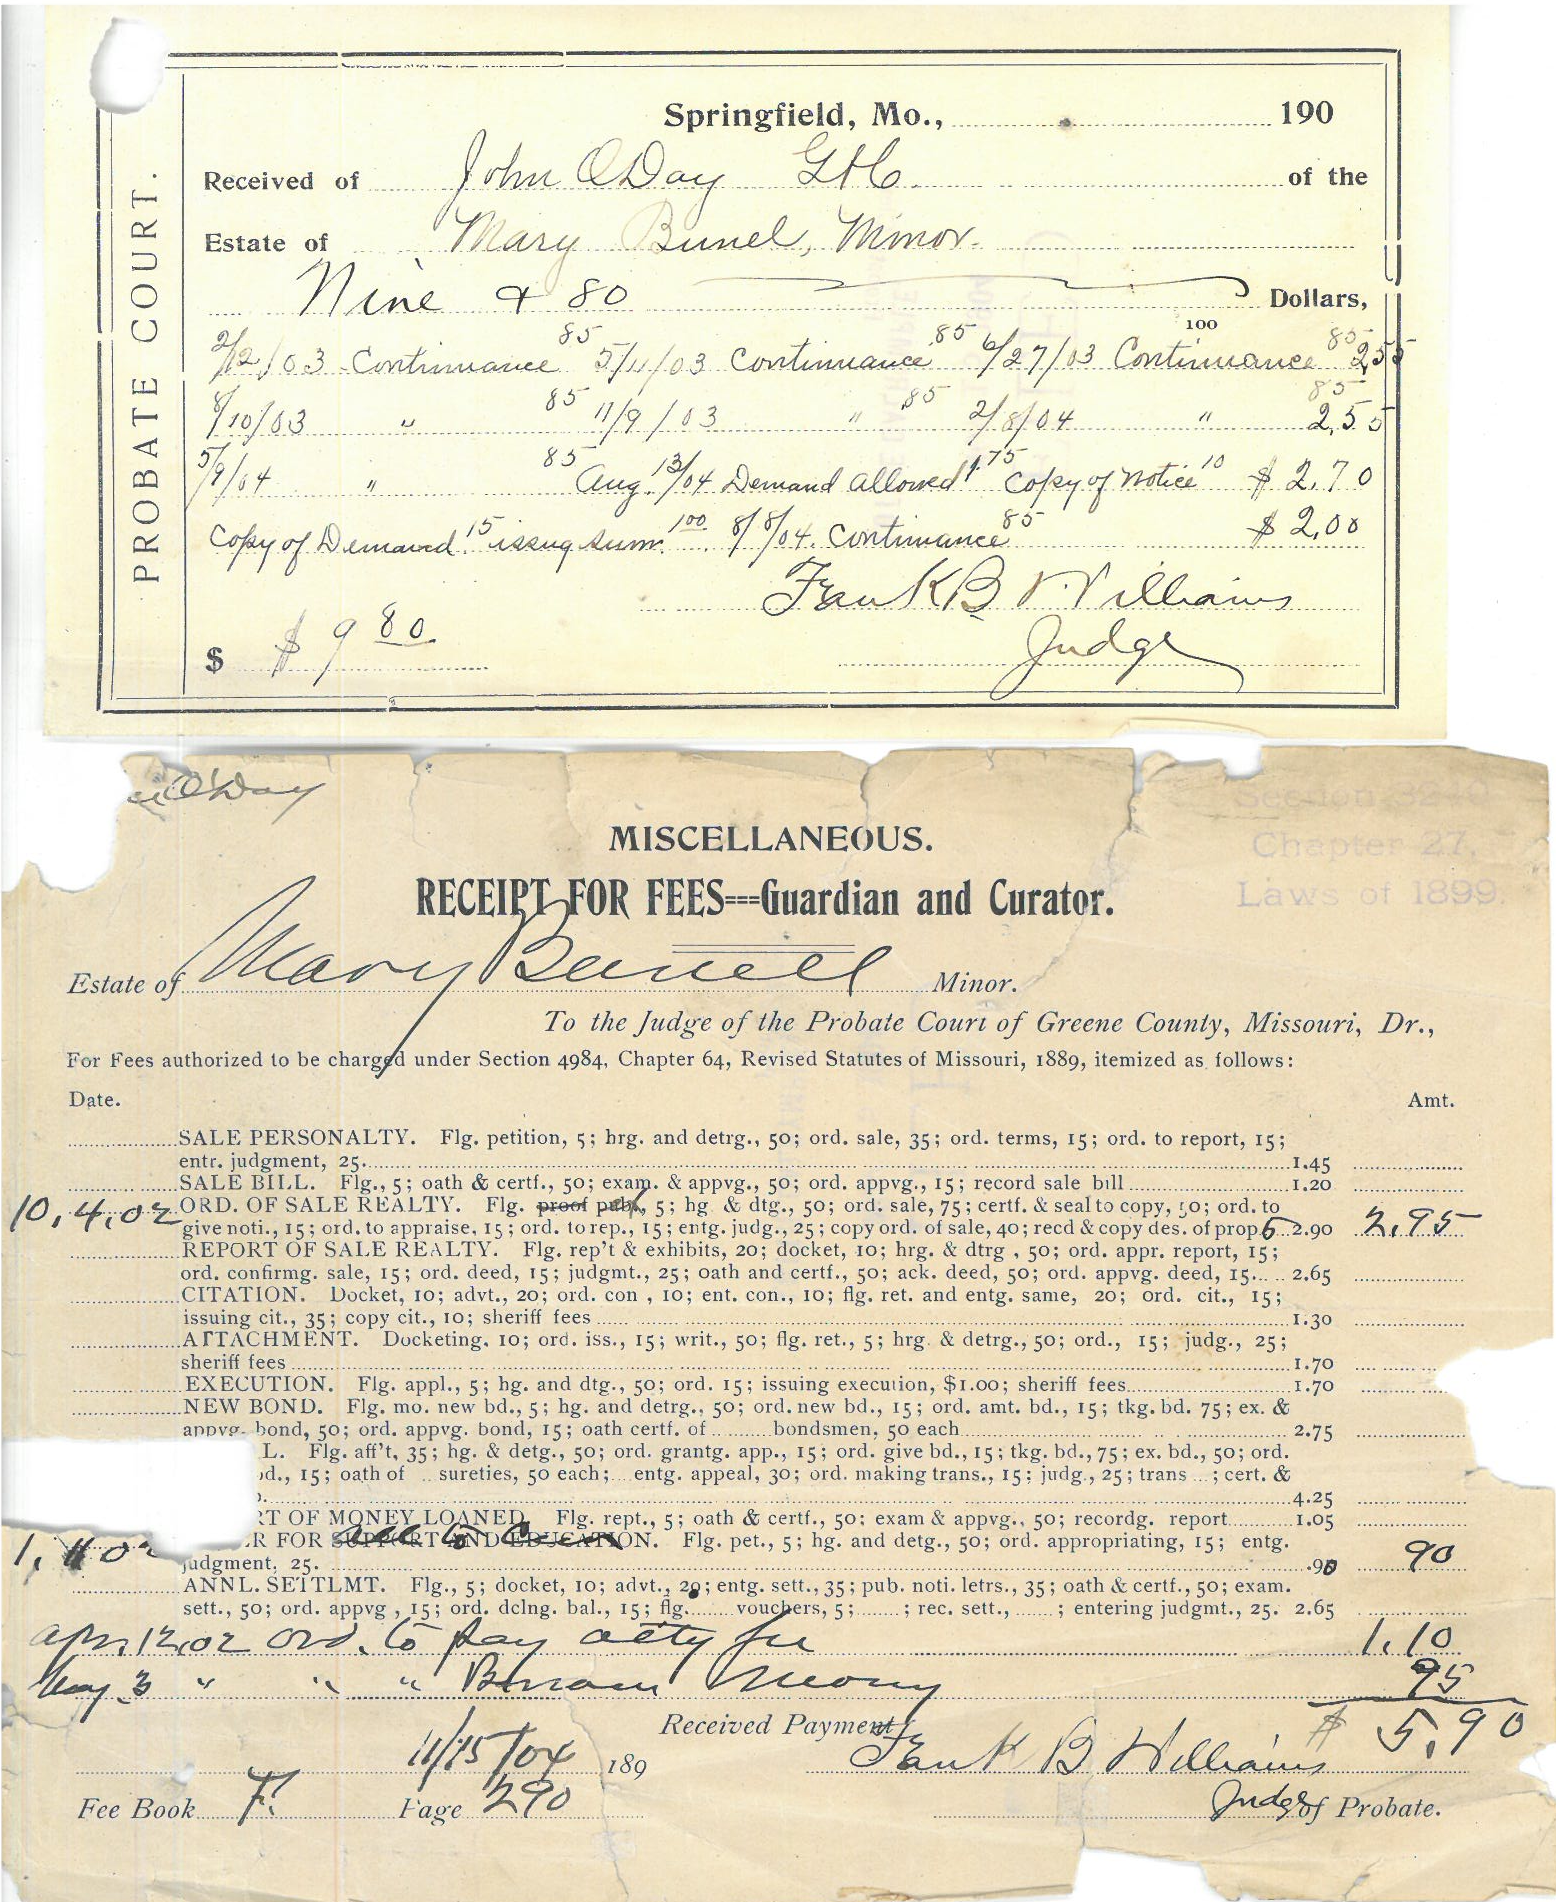 PROBATE COURT.
Springfield, Mo., 190
Received of John O'Day G+C. of the
Estate of Mary Bunel, Minor.
Nine & 80 Dollars,
100
2/12/03 Continuance 85 5/11/03 Continuance 85 6/27/03 Continuance 85 2,55
8/10/03 " 85 11/9/03 " 85 2/8/04 " 85 2,55
5/9/04 " 85 Aug. 13/04 Demand allowed 1.75 Copy of Notice 10 $ 2,70
Copy of Demand 15 issug sum. 1.00 8/8/04. Continuance 85 $ 2,00
Frank B Williams
$ $ 9 80 Judge
O'Day
Section 3240
MISCELLANEOUS.
Chapter 27,
RECEIPT FOR FEES===Guardian and Curator.
Laws of 1899.
Estate of Mary Bunell Minor.
To the Judge of the Probate Court of Greene County, Missouri, Dr.,
For Fees authorized to be charged under Section 4984, Chapter 64, Revised Statutes of Missouri, 1889, itemized as follows:
Date. Amt.
SALE PERSONALTY. Flg. petition, 5; hrg. and detrg., 50; ord. sale, 35; ord. terms, 15; ord. to report, 15;
entr. judgment, 25. 1.45
SALE BILL. Flg., 5; oath & certf., 50; exam. & appvg., 50; ord. appvg., 15; record sale bill 1.20
10,4,02 ORD. OF SALE REALTY. Flg. proof pub., 5; hg & dtg., 50; ord. sale, 75; certf. & seal to copy, 50; ord. to
give noti., 15; ord. to appraise, 15; ord. to rep., 15; entg. judg., 25; copy ord. of sale, 40; recd & copy des. of prop 5 2.90 2,95
REPORT OF SALE REALTY. Flg. rep't & exhibits, 20; docket, 10; hrg. & dtrg, 50; ord. appr. report, 15;
ord. confirmg. sale, 15; ord. deed, 15; judgmt., 25; oath and certf., 50; ack. deed, 50; ord. appvg. deed, 15 2.65
CITATION. Docket, 10; advt., 20; ord. con, 10; ent. con., 10; flg. ret. and entg. same, 20; ord. cit., 15;
issuing cit., 35; copy cit., 10; sheriff fees 1.30
ATTACHMENT. Docketing, 10; ord. iss., 15; writ., 50; flg. ret., 5; hrg. & detrg., 50; ord., 15; judg., 25;
sheriff fees 1.70
EXECUTION. Flg. appl., 5; hg. and dtg., 50; ord. 15; issuing execution, $1.00; sheriff fees 1.70
NEW BOND. Flg. mo. new bd., 5; hg. and detrg., 50; ord. new bd., 15; ord. amt. bd., 15; tkg. bd. 75; ex. &
appvg. bond, 50; ord. appvg. bond, 15; oath certf. of bondsmen, 50 each 2.75
L. Flg. aff't, 35; hg. & detg., 50; ord. grantg. app., 15; ord. give bd., 15; tkg. bd., 75; ex. bd., 50; ord.
d., 15; oath of sureties, 50 each; entg. appeal, 30; ord. making trans., 15; judg., 25; trans ; cert. &
4.25
RT OF MONEY LOANED. Flg. rept., 5; oath & certf., 50; exam & appvg., 50; recordg. report 1.05
1, 02 R FOR SUPPORT AND EDUCATION. Flg. pet., 5; hg. and detg., 50; ord. appropriating, 15; entg.
judgment, 25. .90 90
ANNL. SETTLMT. Flg., 5; docket, 10; advt., 20; entg. sett., 35; pub. noti. letrs., 35; oath & certf., 50; exam.
sett., 50; ord. appvg, 15; ord. dclng. bal., 15; flg. vouchers, 5; ; rec. sett., ; entering judgmt., 25. 2.65
Apr. 12,02 Ord. to pay atty fee 1.10
May. 3 " " " 95
Received Payment, $ 5.90
11/15/04 189 Frank B Williams
Fee Book F. Page 290 Judge of Probate.